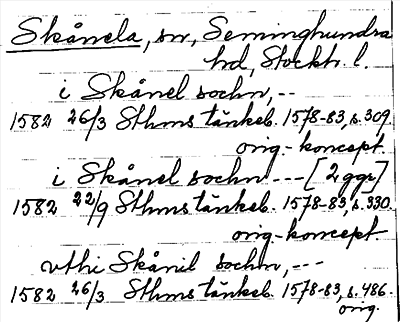 Skånela, sn, Seminghundra
hd, Stockh. l.
i Skånel sochn, --
1582 26/3 Sthms tänkeb. 1578-83, s. 309.
orig.-koncept.
i Skånel sochn --- [2 ggr]
1582 22/9 Sthms tänkeb. 1578-83, s. 330.
orig-koncept
vthi Skånil sochn, ---
1582 26/3 Sthms tänkeb. 1578-83, s. 486.
orig.